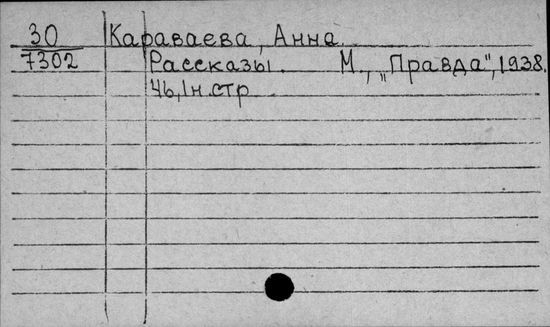 30 Караваева, Анна.
7302 Рассказы. М., „Правда", 1938.
46,1н.стр